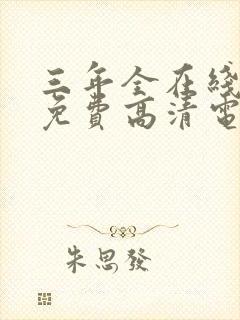 三年全在綫
免費高清電
朱思發